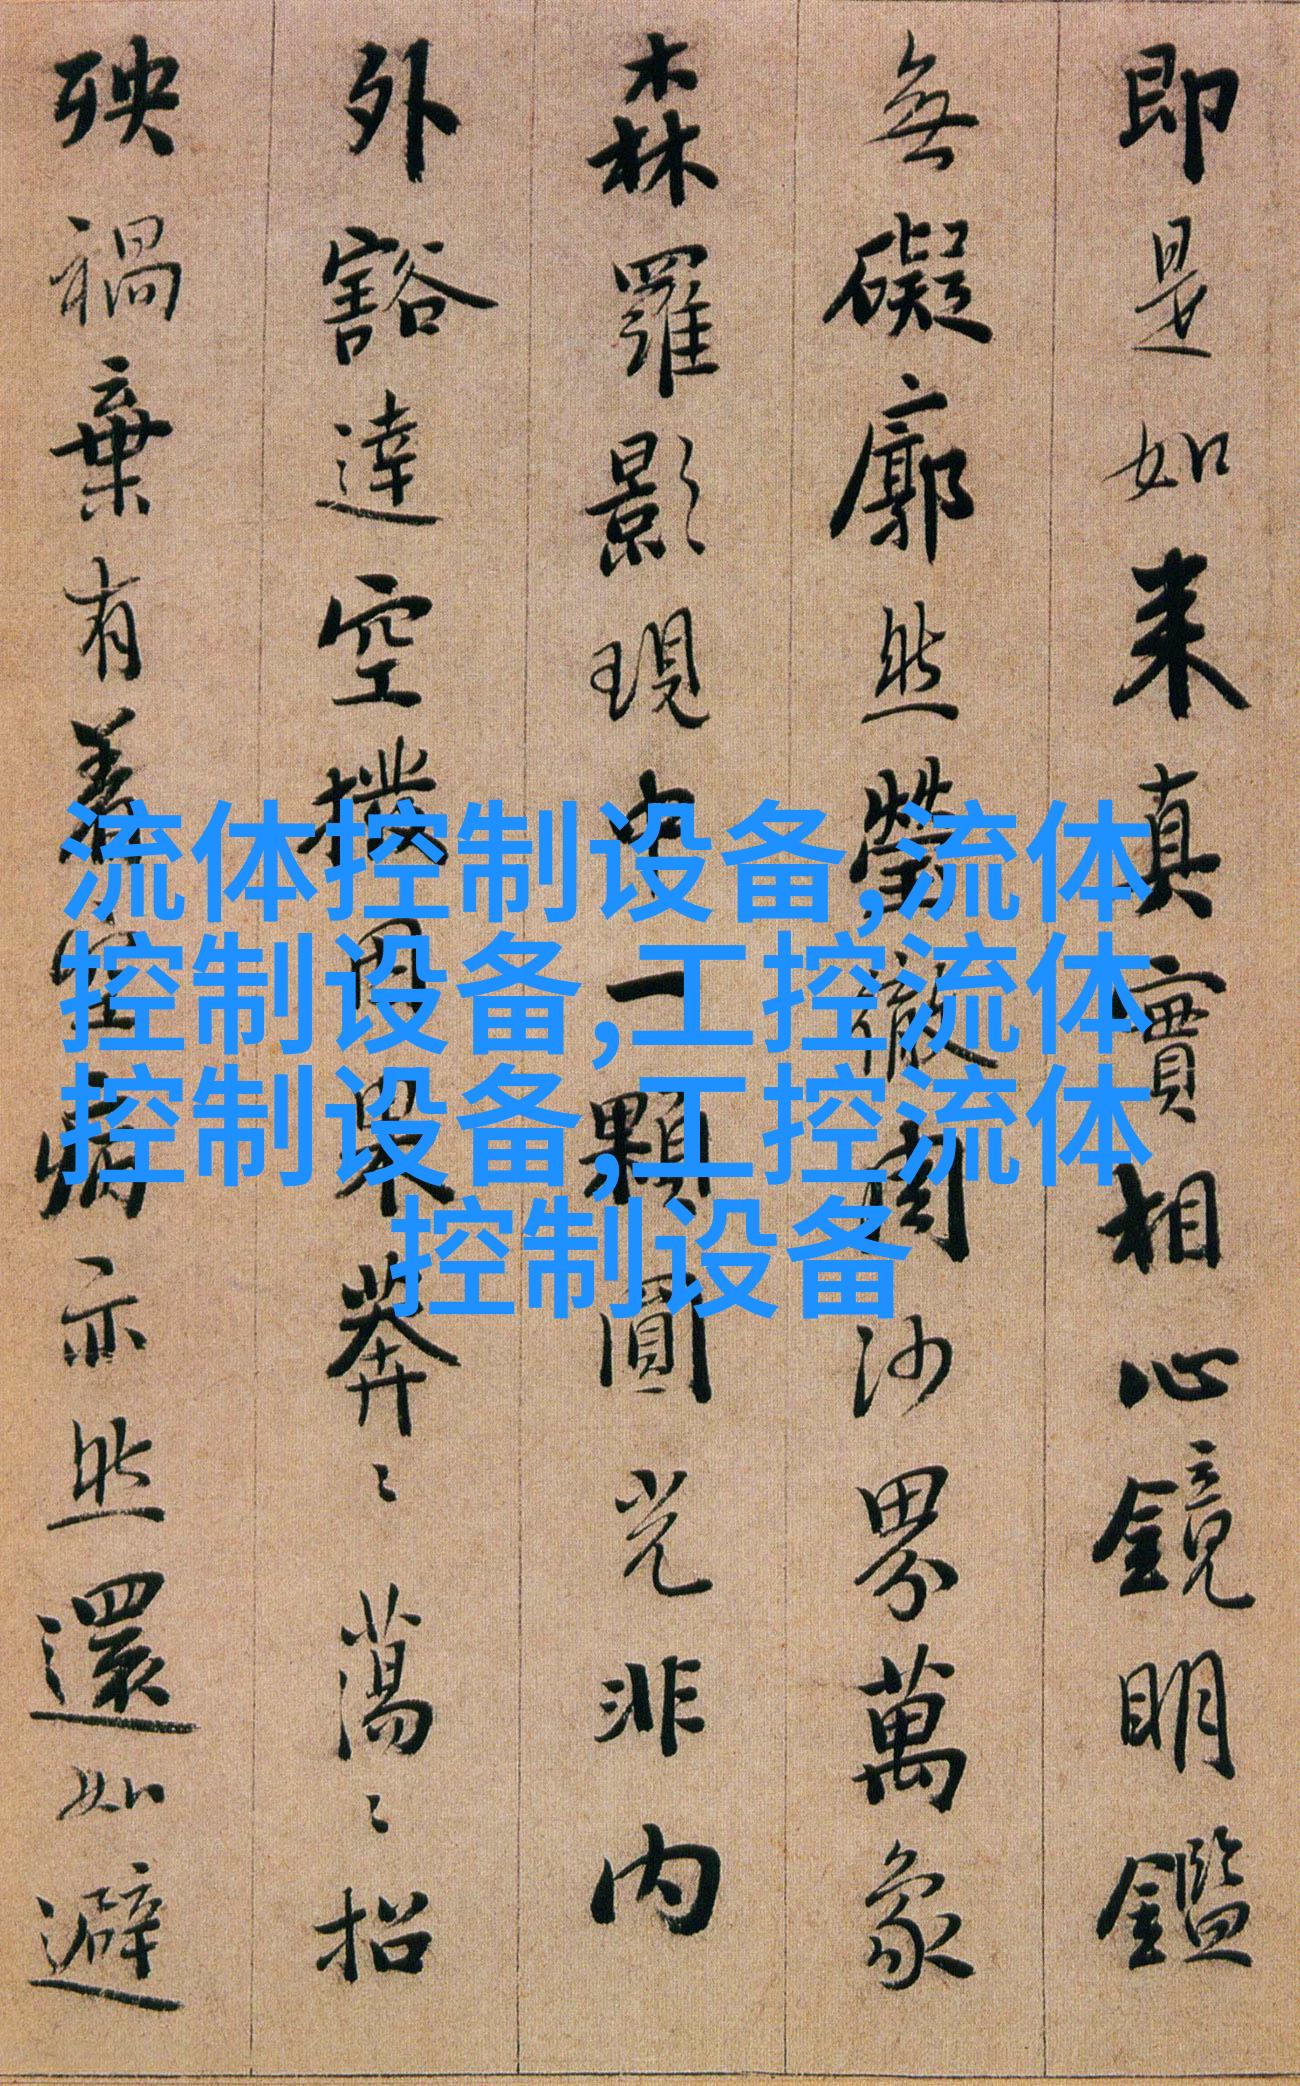 即是如来真實相心鏡明鑑
無礙廓然瑩徹周沙界萬象
森羅影現中一顆圓光非内
外豁達空撥因果莽〻蕩〻招
殃禍棄有著空病亦然還如避
流体控制设备,流体
控制设备,工控流体
控制设备,工控流体
控制设备